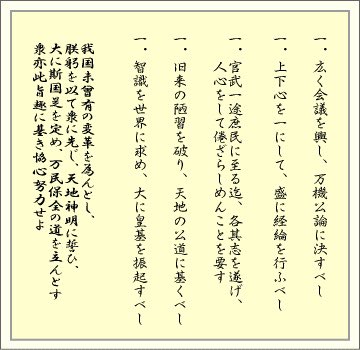 一．広く会議を興し、万機公論に決すべし
一．上下心を一にして、盛に経綸を行ふべし
一．官武一途庶民に至る迄、各其志を遂げ、
人心をして倦ざらしめんことを要す
一．旧来の陋習を破り、天地の公道に基くべし
一．智識を世界に求め、大に皇基を振起すべし
我国未曽有の変革を為んとし、
朕躬を以て衆に先し、天地神明に誓ひ、
大に斯国是を定め、万民保全の道を立んとす
衆亦此旨趣に基き協心努力せよ